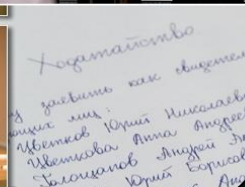 Ходатайство
у заявить как свидетел
ющих лиц:
Цветков Юрий Николаеви
Цветкова Анна Андрее
Голощапов Андрей
Юрий Борисов